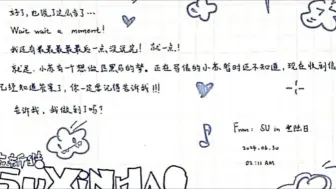 好了，也该了这么合了...
Wait wait a moment!
我还有最最最最最后一点没说完！就一点！
就是，小苏有一个想做
正在写信的小苏暂时还不知道，现在收到信
已经知道答案了，你一定要记得告诉我!!!
告诉我，我做到了吗？
From: SU in
2024.06.30
02:11 AM
SUXINHAO